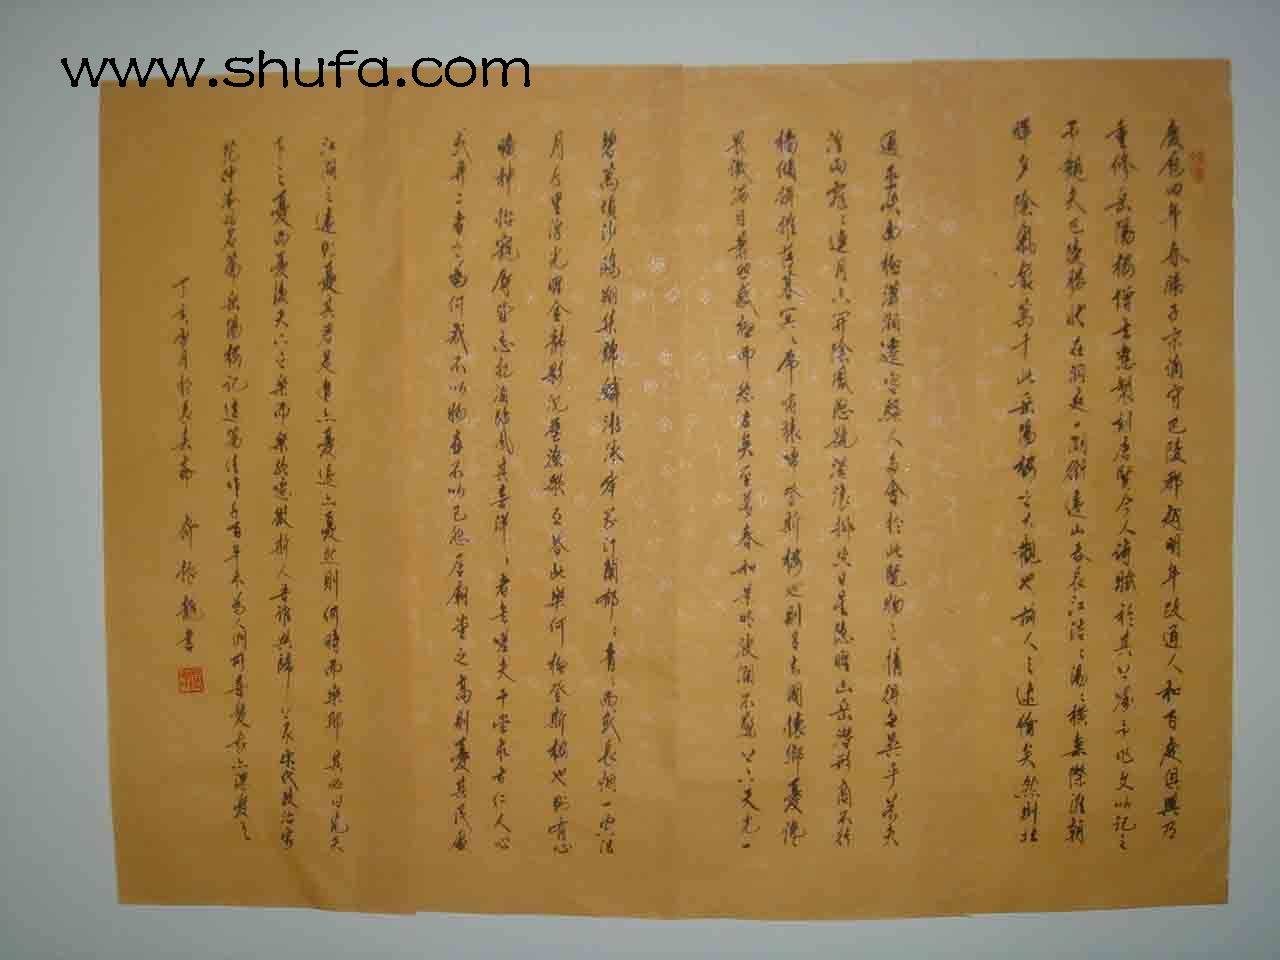 www.shufa.com
慶曆四年春滕子京謫守巴陵郡越明年政通人和百廢俱興乃
重修岳陽樓增其舊製刻唐賢今人詩賦於其上屬予作文以記之
予觀夫巴陵勝狀在洞庭一湖銜遠山吞長江浩々湯々橫無際涯朝
暉夕陰氣象萬千此岳陽樓之大觀也前人之述備矣然則北
通巫峽南極瀟湘遷客騷人多會於此覽物之情得無異乎若夫
淫雨霏々連月不開陰風怒號濁浪排空日星隱曜山岳潛形商旅不行
檣傾楫摧薄暮冥々虎嘯猿啼登斯樓也則有去國懷鄉憂讒
畏譏滿目蕭然感極而悲者矣至若春和景明波瀾不驚上下天光一
碧萬頃沙鷗翔集錦鱗游泳岸芷汀蘭郁々青々而或長煙一空皓
月千里浮光躍金靜影沉璧漁歌互答此樂何極登斯樓也則有心
曠神怡寵辱皆忘把酒臨風其喜洋々者矣嗟夫予嘗求古仁人心
或異二者之為何哉不以物喜不以己悲居廟堂之高則憂其民處
江湖之遠則憂其君是進亦憂退亦憂然則何時而樂耶其必曰先天
下之憂而憂後天下之樂而樂歟噫微斯人吾誰與歸 宋代政治家
范仲淹的名篇岳陽樓記這篇佳作千百年來為人們所喜愛吾亦深愛之
丁亥 月於 齋 書